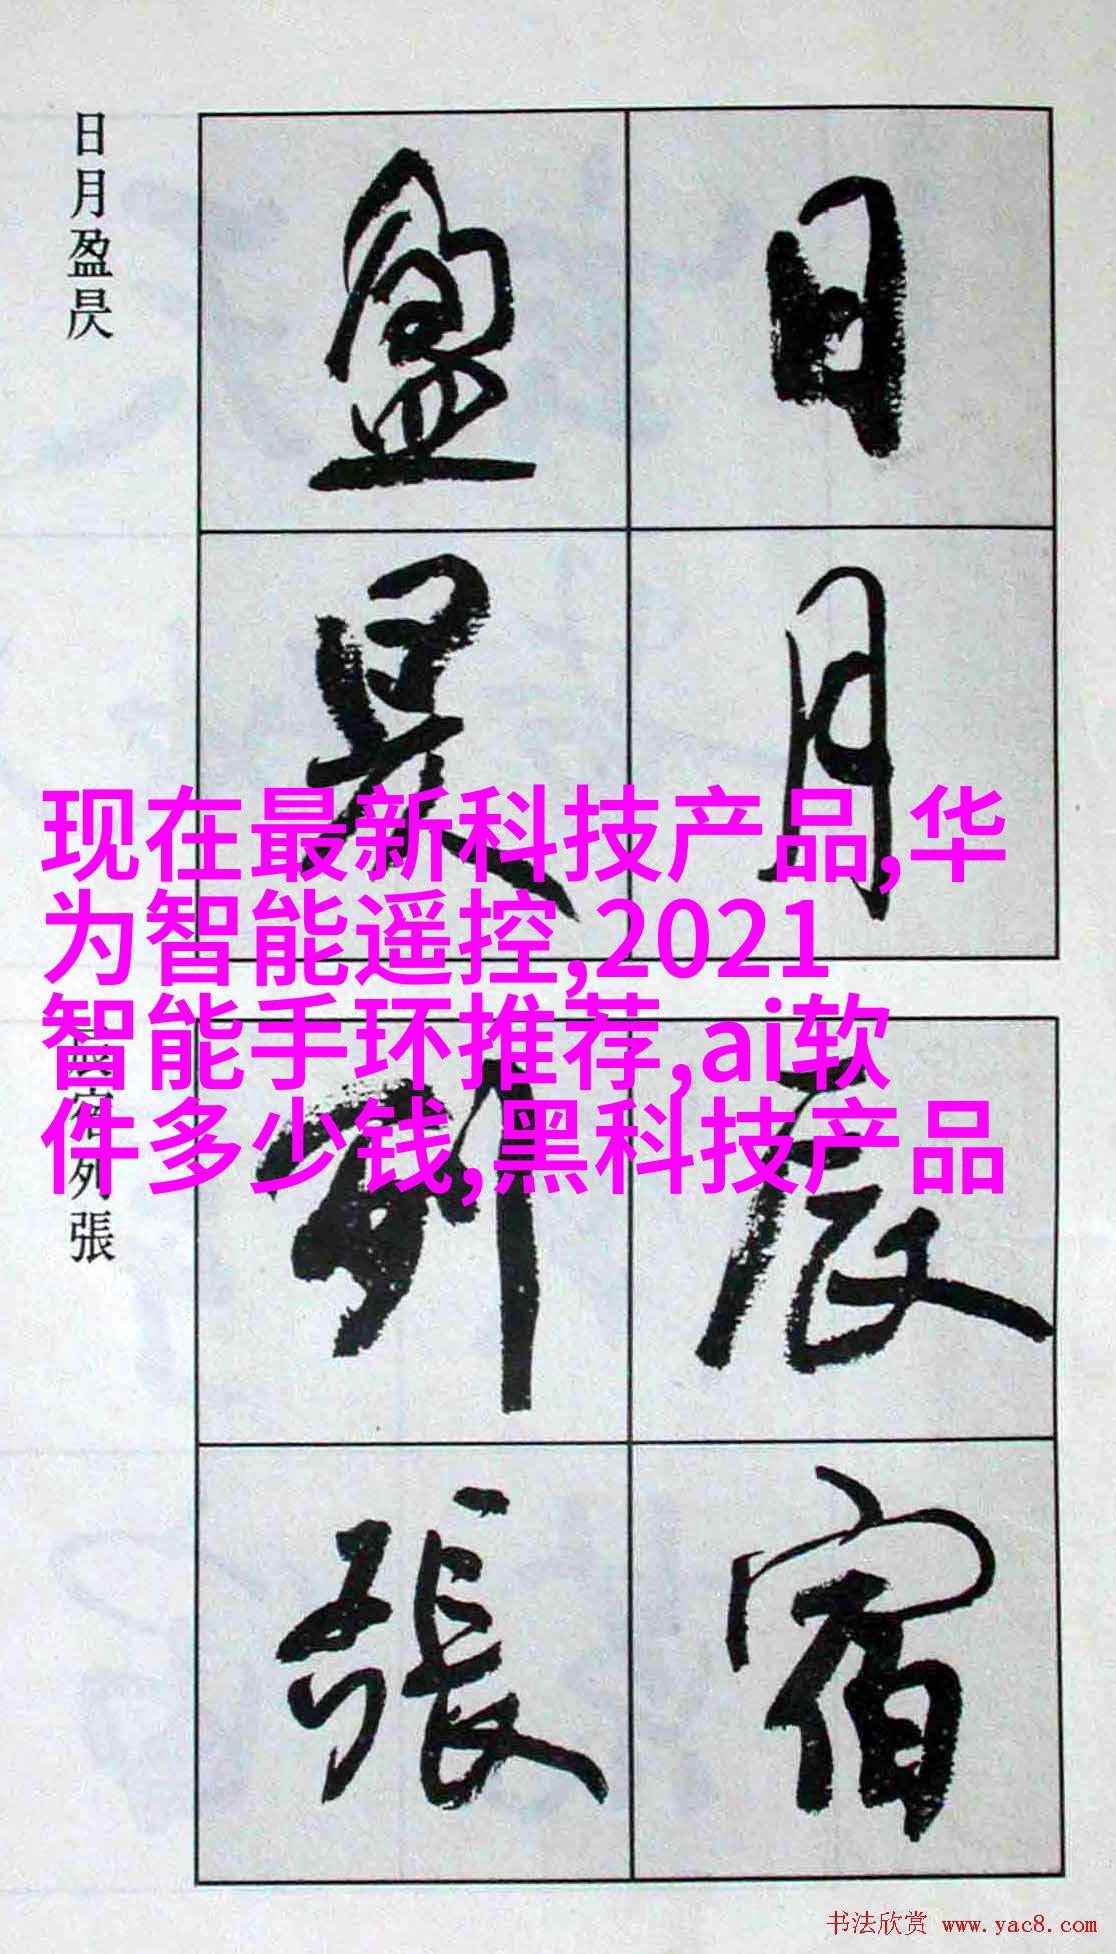 日月盈昃
日
月
盈
昃
现在最新科技产品,华
为智能遥控,2021
智能手环推荐,ai软
件多少钱,黑科技产品
列張
辰
宿
列
張
书法欣赏 www.yac8.com